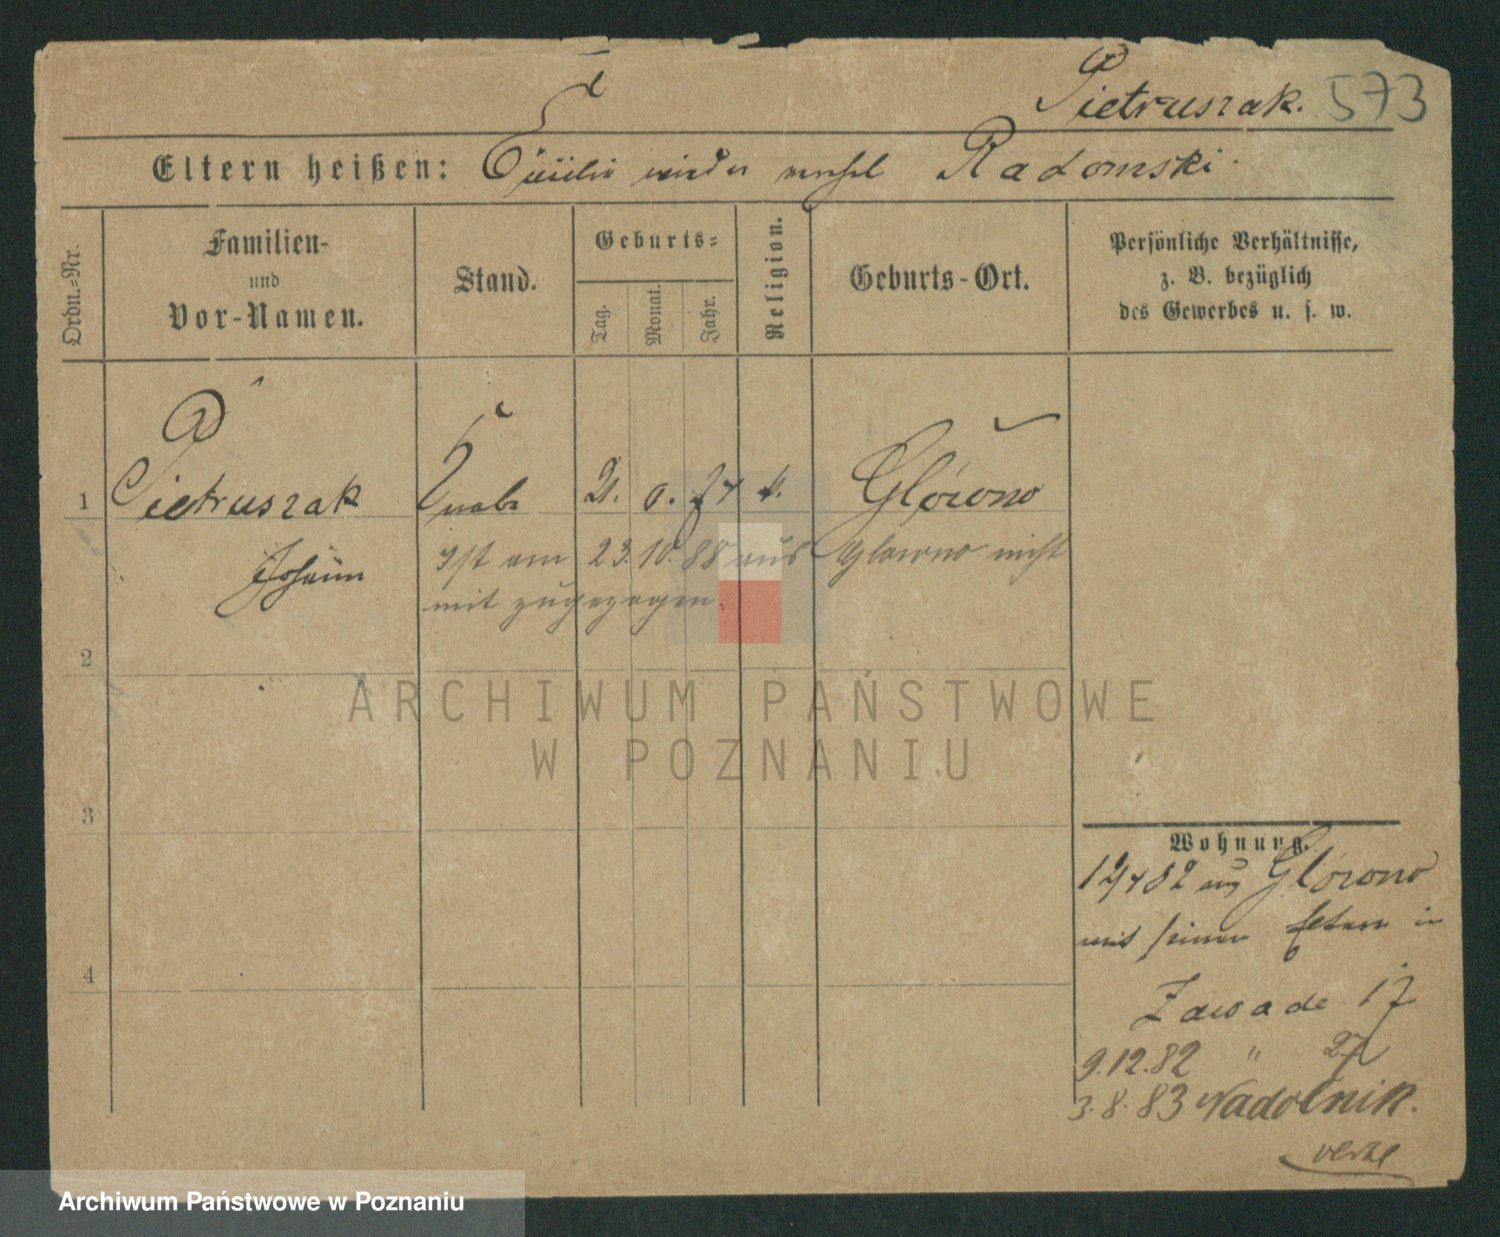 Pietruszak. 573
Eltern heißen: Cäcilie wieder verehel Radomski.
Ordn.-Nr.
Familien-
und
Vor-Namen.
Stand.
Geburts-
Tag.
Monat.
Jahr.
Religion.
Geburts-Ort.
Persönliche Verhältnisse,
z. B. bezüglich
des Gewerbes u. s. w.
1 Pietruszak Knabe Główno
Johann Ist am 23. 10. 88 aus Glowno nicht
mit zugezogen
2
ARCHIWUM PAŃSTWOWE
W POZNANIU
3
4
Wohnung.
82 aus Główno
mit seinen Eltern in
Zawade 17
9.12.82 " 27
3.8.83 Nadolnik.
Archiwum Państwowe w Poznaniu